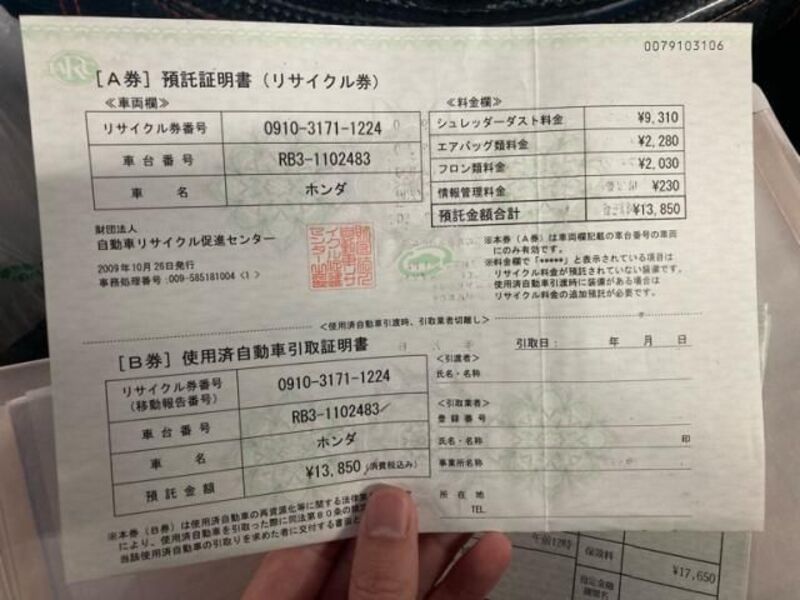 0079103106
[A券] 預託証明書 (リサイクル券)
≪車両欄≫
リサイクル券番号 0910-3171-1224
車台番号 RB3-1102483
車名 ホンダ
≪料金欄≫
シュレッダーダスト料金 ¥9,310
エアバッグ類料金 ¥2,280
フロン類料金 ¥2,030
情報管理料金 ¥230
預託金額合計 ¥13,850
財団法人
自動車リサイクル促進センター
2009年10月26日発行
事務処理番号:009-585181004 <1>
※本券(A券)は車両欄記載の車台番号の車両
にのみ有効です。
※料金欄で「*****」と表示されている項目は
リサイクル料金が預託されていない装備です。
使用済自動車引渡時に装備がある場合は
リサイクル料金の追加預託が必要です。
<使用済自動車引渡時、引取業者切離し>
[B券] 使用済自動車引取証明書
リサイクル券番号
(移動報告番号) 0910-3171-1224
車台番号 RB3-1102483
車名 ホンダ
預託金額 ¥13,850 (消費税込み)
引取日: 年 月 日
<引渡者>
氏名・名称
<引取業者>
登録番号
氏名・名称 印
事業所名称
所在地
TEL
※本券(B券)は使用済自動車の再資源化等に関する法律
により、使用済自動車を引取った際に同法第80条の
当該使用済自動車の引取りを求めた者に交付する書面
午前12時
保険料
¥17,650
指定金融
機関名